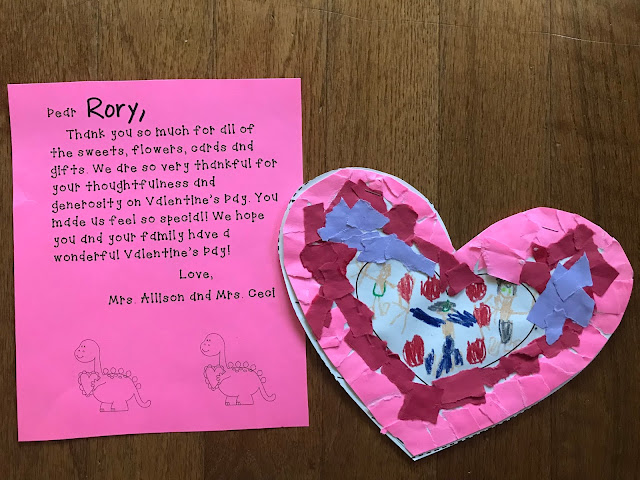 Dear Rory,
Thank you so much for all of
the sweets, flowers, cards and
gifts. We are so very thankful for
your thoughtfulness and
generosity on Valentine's Day. You
made us feel so special! We hope
you and your family have a
wonderful Valentine's Day!
Love,
Mrs. Allison and Mrs. Ceci